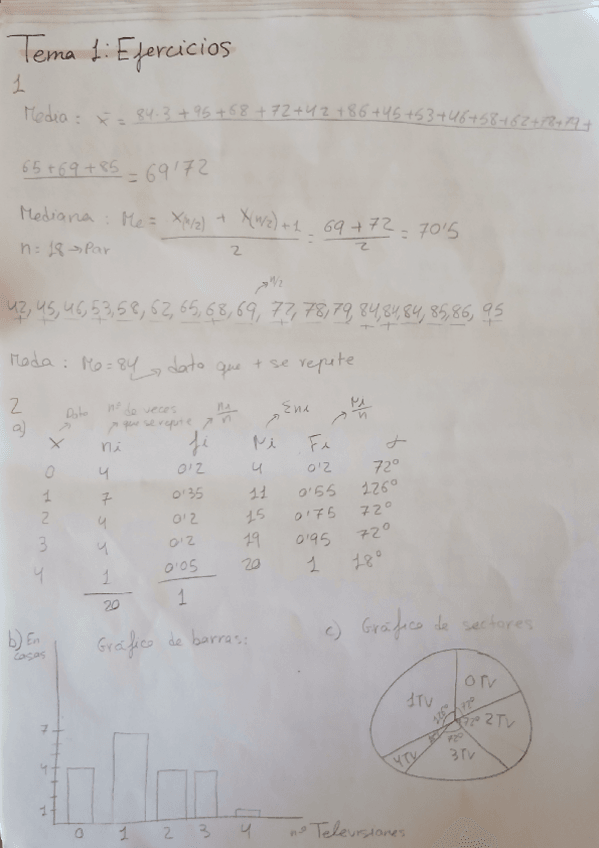 Tema 1: Ejercicios
1
Media: x̄ = 84·3 + 95 + 68 + 72 + 42 + 86 + 45 + 53 + 46 + 58 + 62 + 78 + 79 +
65 + 69 + 85 = 69'72
Mediana: Me = X(n/2) + X(n/2)+1 / 2 = 69 + 72 / 2 = 70'5
n = 18 → Par
→ n/2
42, 45, 46, 53, 58, 62, 65, 68, 69, 72, 78, 79, 84, 84, 84, 85, 86, 95
Moda: Mo = 84 → dato que + se repite
2
a) Dato nº de veces que se repite ni/n Σni Ni/n
x ni fi Ni Fi α
0 4 0'2 4 0'2 72º
1 7 0'35 11 0'55 126º
2 4 0'2 15 0'75 72º
3 4 0'2 19 0'95 72º
4 1 0'05 20 1 18º
20 1
b) En casas Gráfico de barras:
7
4
1
0 1 2 3 4 nº Televisiones
c) Gráfico de sectores
1TV 0TV
126º 72º
72º 2TV
18º 72º
4TV 3TV